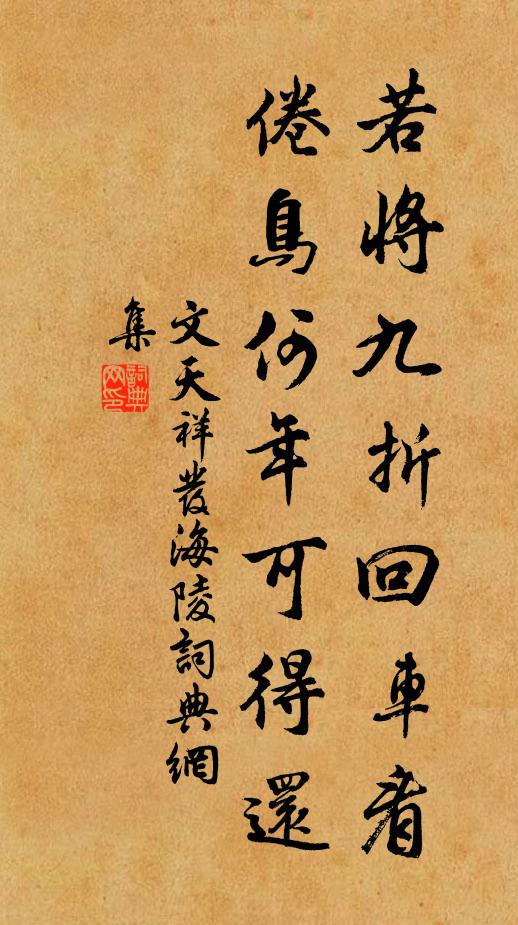 若將九折回車看
倦鳥何年可得還
文天祥發海陵詞典網
集
詞典
网印